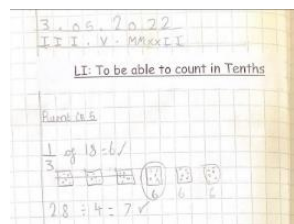 3.05.2022
III.V.MMXXII
LI: To be able to count in Tenths
1/3 of 18 = 6 ✓
6 6 6
28 ÷ 4 = 7 ✓